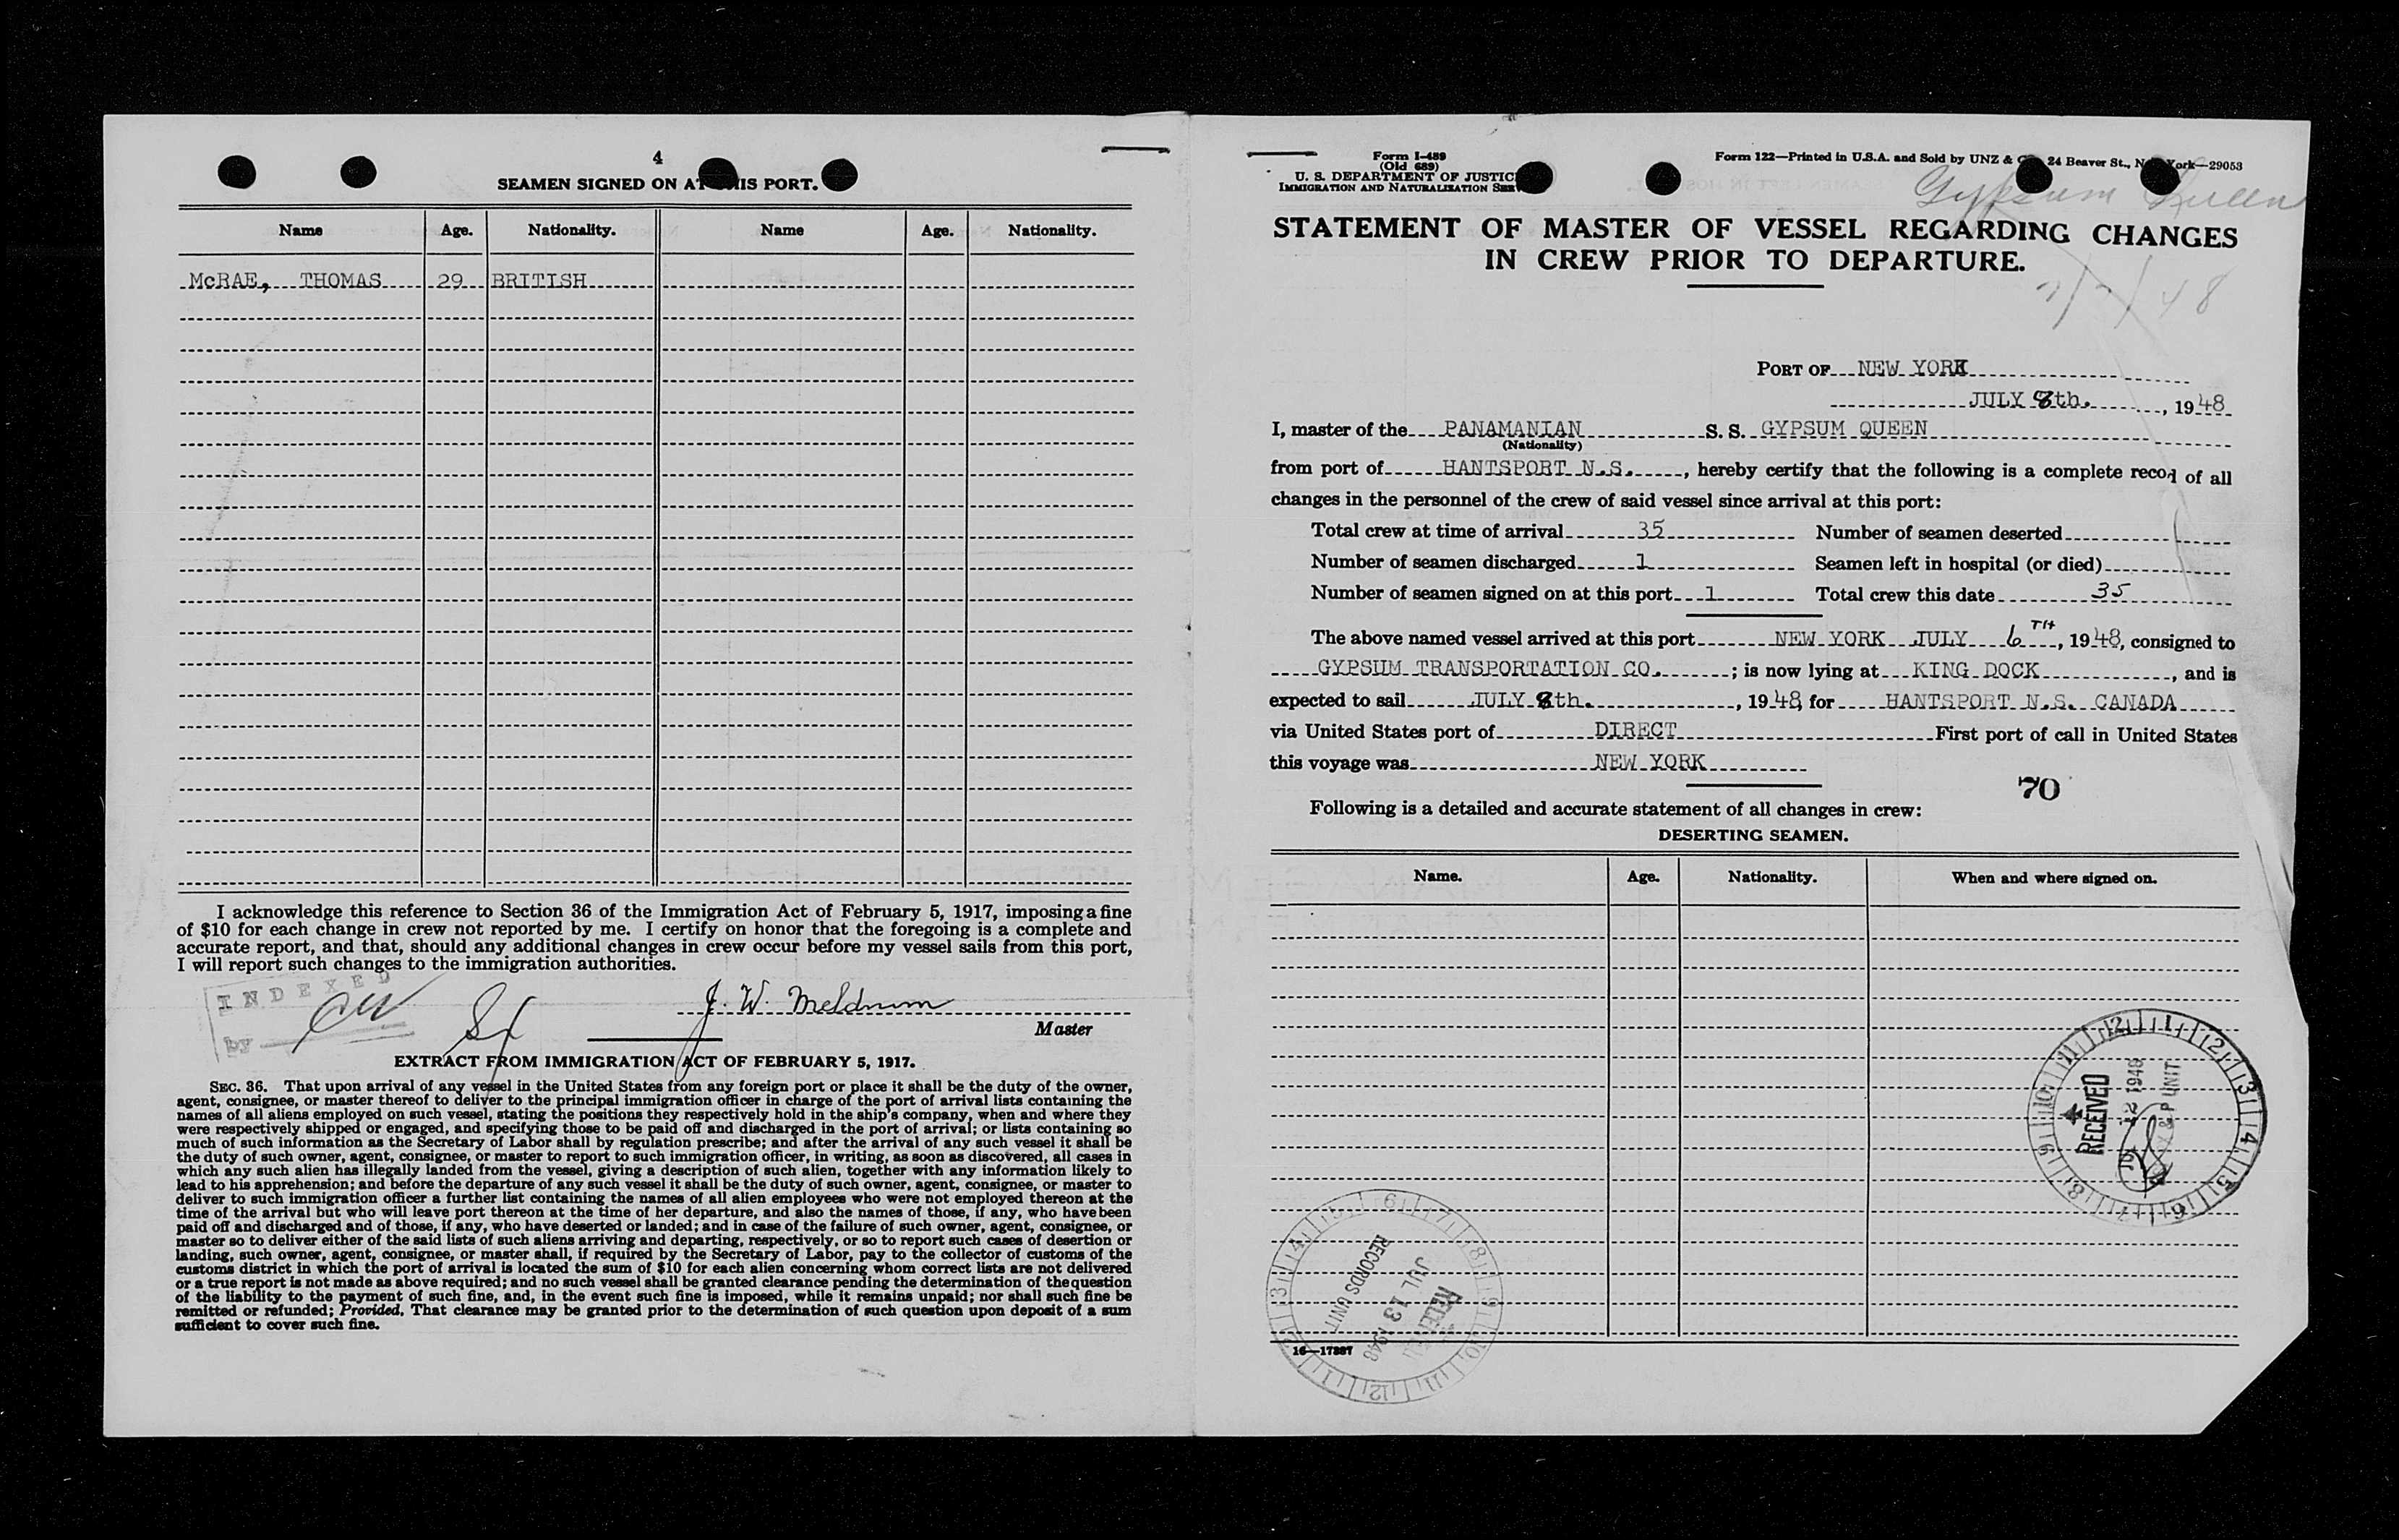 4
SEAMEN SIGNED ON AT THIS PORT.
Name Age. Nationality. Name Age. Nationality.
McRAE, THOMAS 29 BRITISH
I acknowledge this reference to Section 36 of the Immigration Act of February 5, 1917, imposing a fine
of $10 for each change in crew not reported by me. I certify on honor that the foregoing is a complete and
accurate report, and that, should any additional changes in crew occur before my vessel sails from this port,
I will report such changes to the immigration authorities.
INDEXED
by
J. W. Meldrum
Master
EXTRACT FROM IMMIGRATION ACT OF FEBRUARY 5, 1917.
SEC. 36. That upon arrival of any vessel in the United States from any foreign port or place it shall be the duty of the owner,
agent, consignee, or master thereof to deliver to the principal immigration officer in charge of the port of arrival lists containing the
names of all aliens employed on such vessel, stating the positions they respectively hold in the ship's company, when and where they
were respectively shipped or engaged, and specifying those to be paid off and discharged in the port of arrival; or lists containing so
much of such information as the Secretary of Labor shall by regulation prescribe; and after the arrival of any such vessel it shall be
the duty of such owner, agent, consignee, or master to report to such immigration officer, in writing, as soon as discovered, all cases in
which any such alien has illegally landed from the vessel, giving a description of such alien, together with any information likely to
lead to his apprehension; and before the departure of any such vessel it shall be the duty of such owner, agent, consignee, or master to
deliver to such immigration officer a further list containing the names of all alien employees who were not employed thereon at the
time of the arrival but who will leave port thereon at the time of her departure, and also the names of those, if any, who have been
paid off and discharged and of those, if any, who have deserted or landed; and in case of the failure of such owner, agent, consignee, or
master so to deliver either of the said lists of such aliens arriving and departing, respectively, or so to report such cases of desertion or
landing, such owner, agent, consignee, or master shall, if required by the Secretary of Labor, pay to the collector of customs of the
customs district in which the port of arrival is located the sum of $10 for each alien concerning whom correct lists are not delivered
or a true report is not made as above required; and no such vessel shall be granted clearance pending the determination of the question
of the liability to the payment of such fine, and, in the event such fine is imposed, while it remains unpaid; nor shall such fine be
remitted or refunded; Provided, That clearance may be granted prior to the determination of such question upon deposit of a sum
sufficient to cover such fine.
Form I-489
(Old 689)
U. S. DEPARTMENT OF JUSTICE
IMMIGRATION AND NATURALIZATION SER
Form 122—Printed in U.S.A. and Sold by UNZ & 24 Beaver St., New York—29053
Gypsum Queen
STATEMENT OF MASTER OF VESSEL REGARDING CHANGES
IN CREW PRIOR TO DEPARTURE.
PORT OF NEW YORK
JULY 8th. , 1948
I, master of the PANAMANIAN S. S. GYPSUM QUEEN
(Nationality)
from port of HANTSPORT N.S. , hereby certify that the following is a complete record of all
changes in the personnel of the crew of said vessel since arrival at this port:
Total crew at time of arrival 35 Number of seamen deserted
Number of seamen discharged 1 Seamen left in hospital (or died)
Number of seamen signed on at this port 1 Total crew this date 35
The above named vessel arrived at this port NEW YORK JULY 6TH , 1948, consigned to
GYPSUM TRANSPORTATION CO. ; is now lying at KING DOCK , and is
expected to sail JULY 8th. , 1948, for HANTSPORT N.S. CANADA
via United States port of DIRECT First port of call in United States
this voyage was NEW YORK
70
Following is a detailed and accurate statement of all changes in crew:
DESERTING SEAMEN.
Name. Age. Nationality. When and where signed on.
RECEIVED
1948
P UNIT
RECEIVED
JUL 13 1948
RECORDS UNIT
16—17387